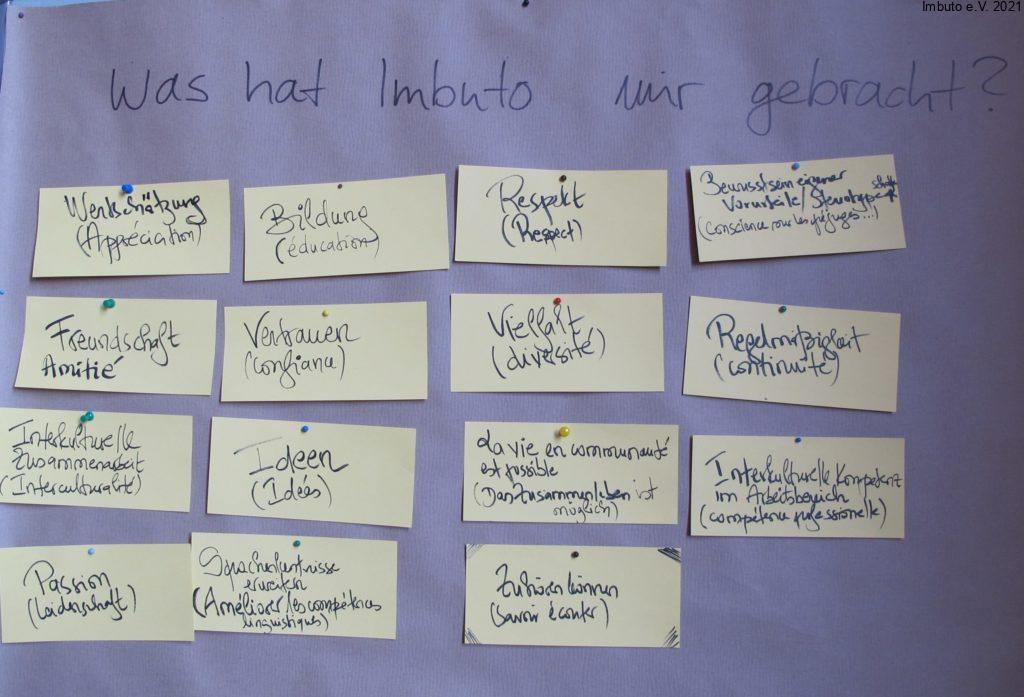 Imbuto e.V. 2021
Was hat Imbuto mir gebracht?
Wertschätzung
(Appréciation)
Bildung
(éducation)
Respekt
(Respect)
Bewusstsein eigener
Vorurteile/Stereotype
(conscience pour les préjugés...)
Freundschaft
Amitié
Vertrauen
(confiance)
Vielfalt
(diversité)
Regelmäßigkeit
(continuité)
Interkulturelle
Zusammenarbeit
(Interculturalité)
Ideen
(Idées)
La vie en communauté
est possible
(Das Zusammenleben ist
möglich)
Interkulturelle Kompetenz
im Arbeitsbereich
(compétence professionelle)
Passion
(Leidenschaft)
Sprachkenntnisse
erweitern
(Améliorer les compétences
linguistiques)
Zuhören können
(Savoir écouter)